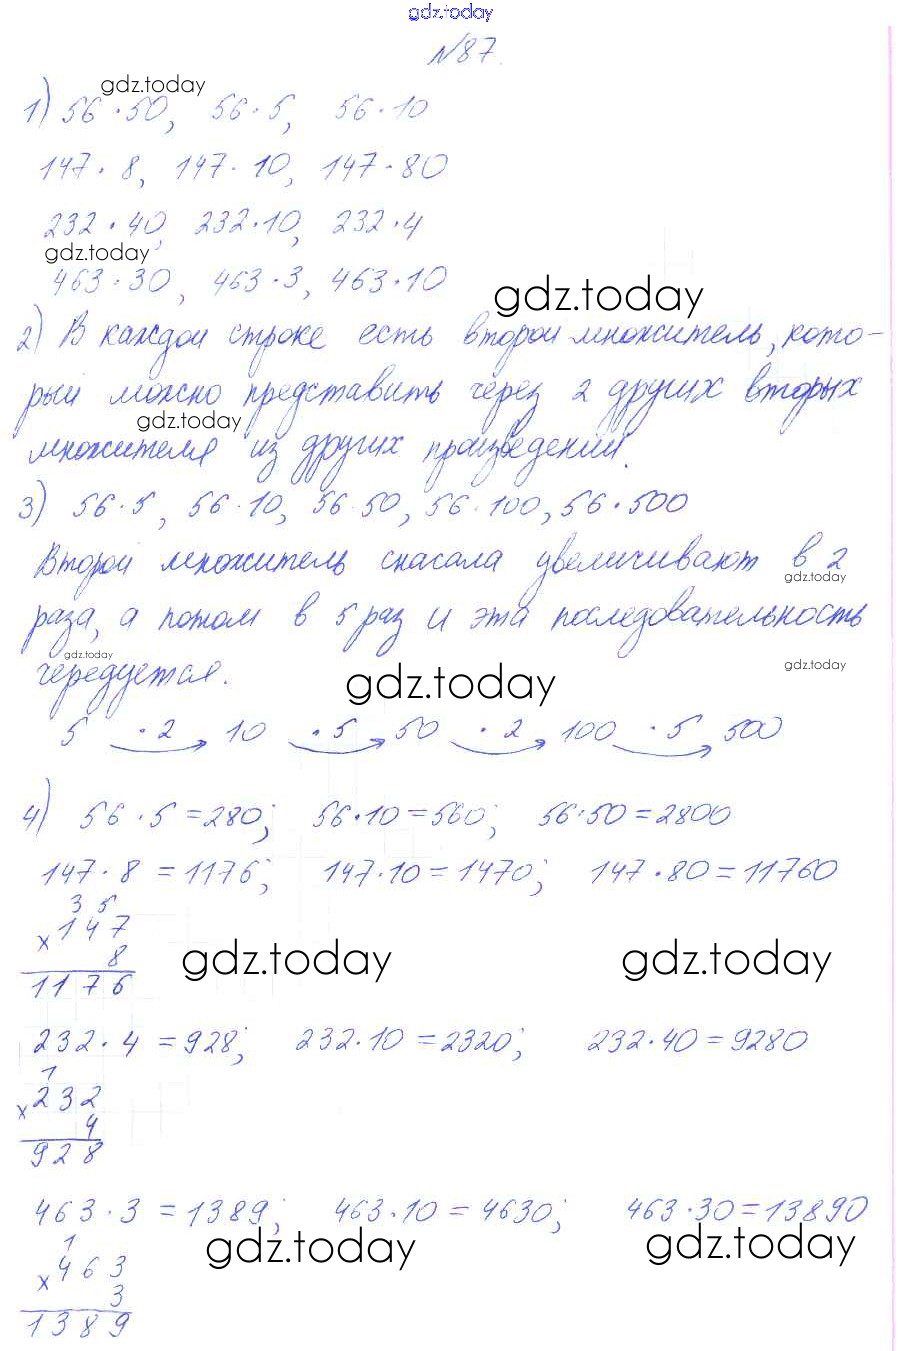 gdz.today
№87.
gdz.today
1) 56·50, 56·5, 56·10
147·8, 147·10, 147·80
232·40, 232·10, 232·4
gdz.today
463·30, 463·3, 463·10
gdz.today
2) В каждой строке есть второй множитель, кото-
рый можно представить через 2 других вторых
gdz.today
множителя из других произведений.
3) 56·5, 56·10, 56·50, 56·100, 56·500
Второй множитель сначала увеличивают в 2
gdz.today
раза, а потом в 5 раз и эта последовательность
gdz.today
gdz.today
чередуется.
gdz.today
5 ·2 10 ·5 50 ·2 100 ·5 500
4) 56·5=280; 56·10=560; 56·50=2800
147·8=1176; 147·10=1470; 147·80=11760
3 5
×147
8
gdz.today gdz.today
1176
232·4=928; 232·10=2320; 232·40=9280
1
×232
4
928
463·3=1389; 463·10=4630; 463·30=13890
gdz.today gdz.today
1
×463
3
1389